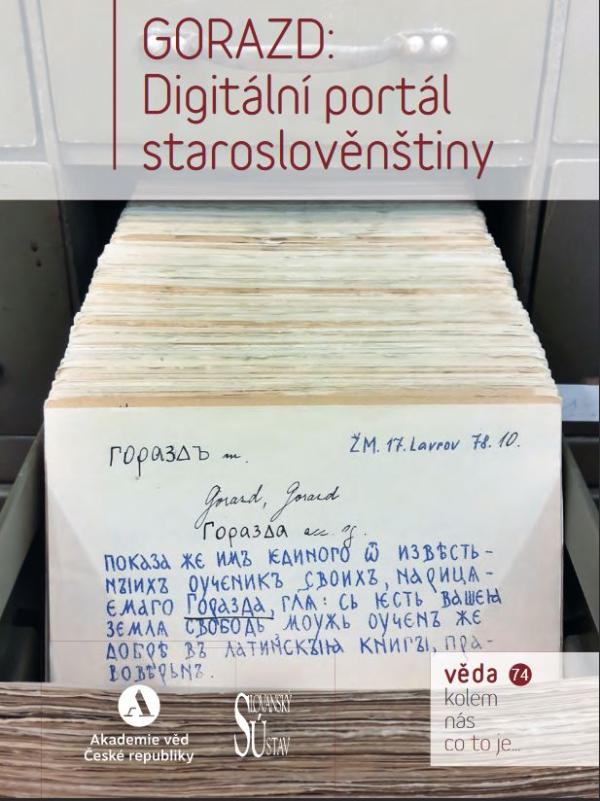 GORAZD:
Digitální portál
staroslověnštiny
гораздъ m.
ŽM. 17. Lavrov 78. 10.
Gorazd, Gorazd
Горазда acc. sg.
показа же имъ ѥдиного ѿ извѣсть-
нꙑихъ оученикъ своихъ, нарица-
ѥмаго Горазда, гл҃а: сь ѥсть вашеѩ
землѧ свободь моужь оученъ же
добрѣ въ латиньскꙑѩ книгꙑ, пра-
вовѣрьнъ.
Akademie věd
České republiky
SLOVANSKÝ
ÚSTAV
věda 74
kolem
nás
co to je...